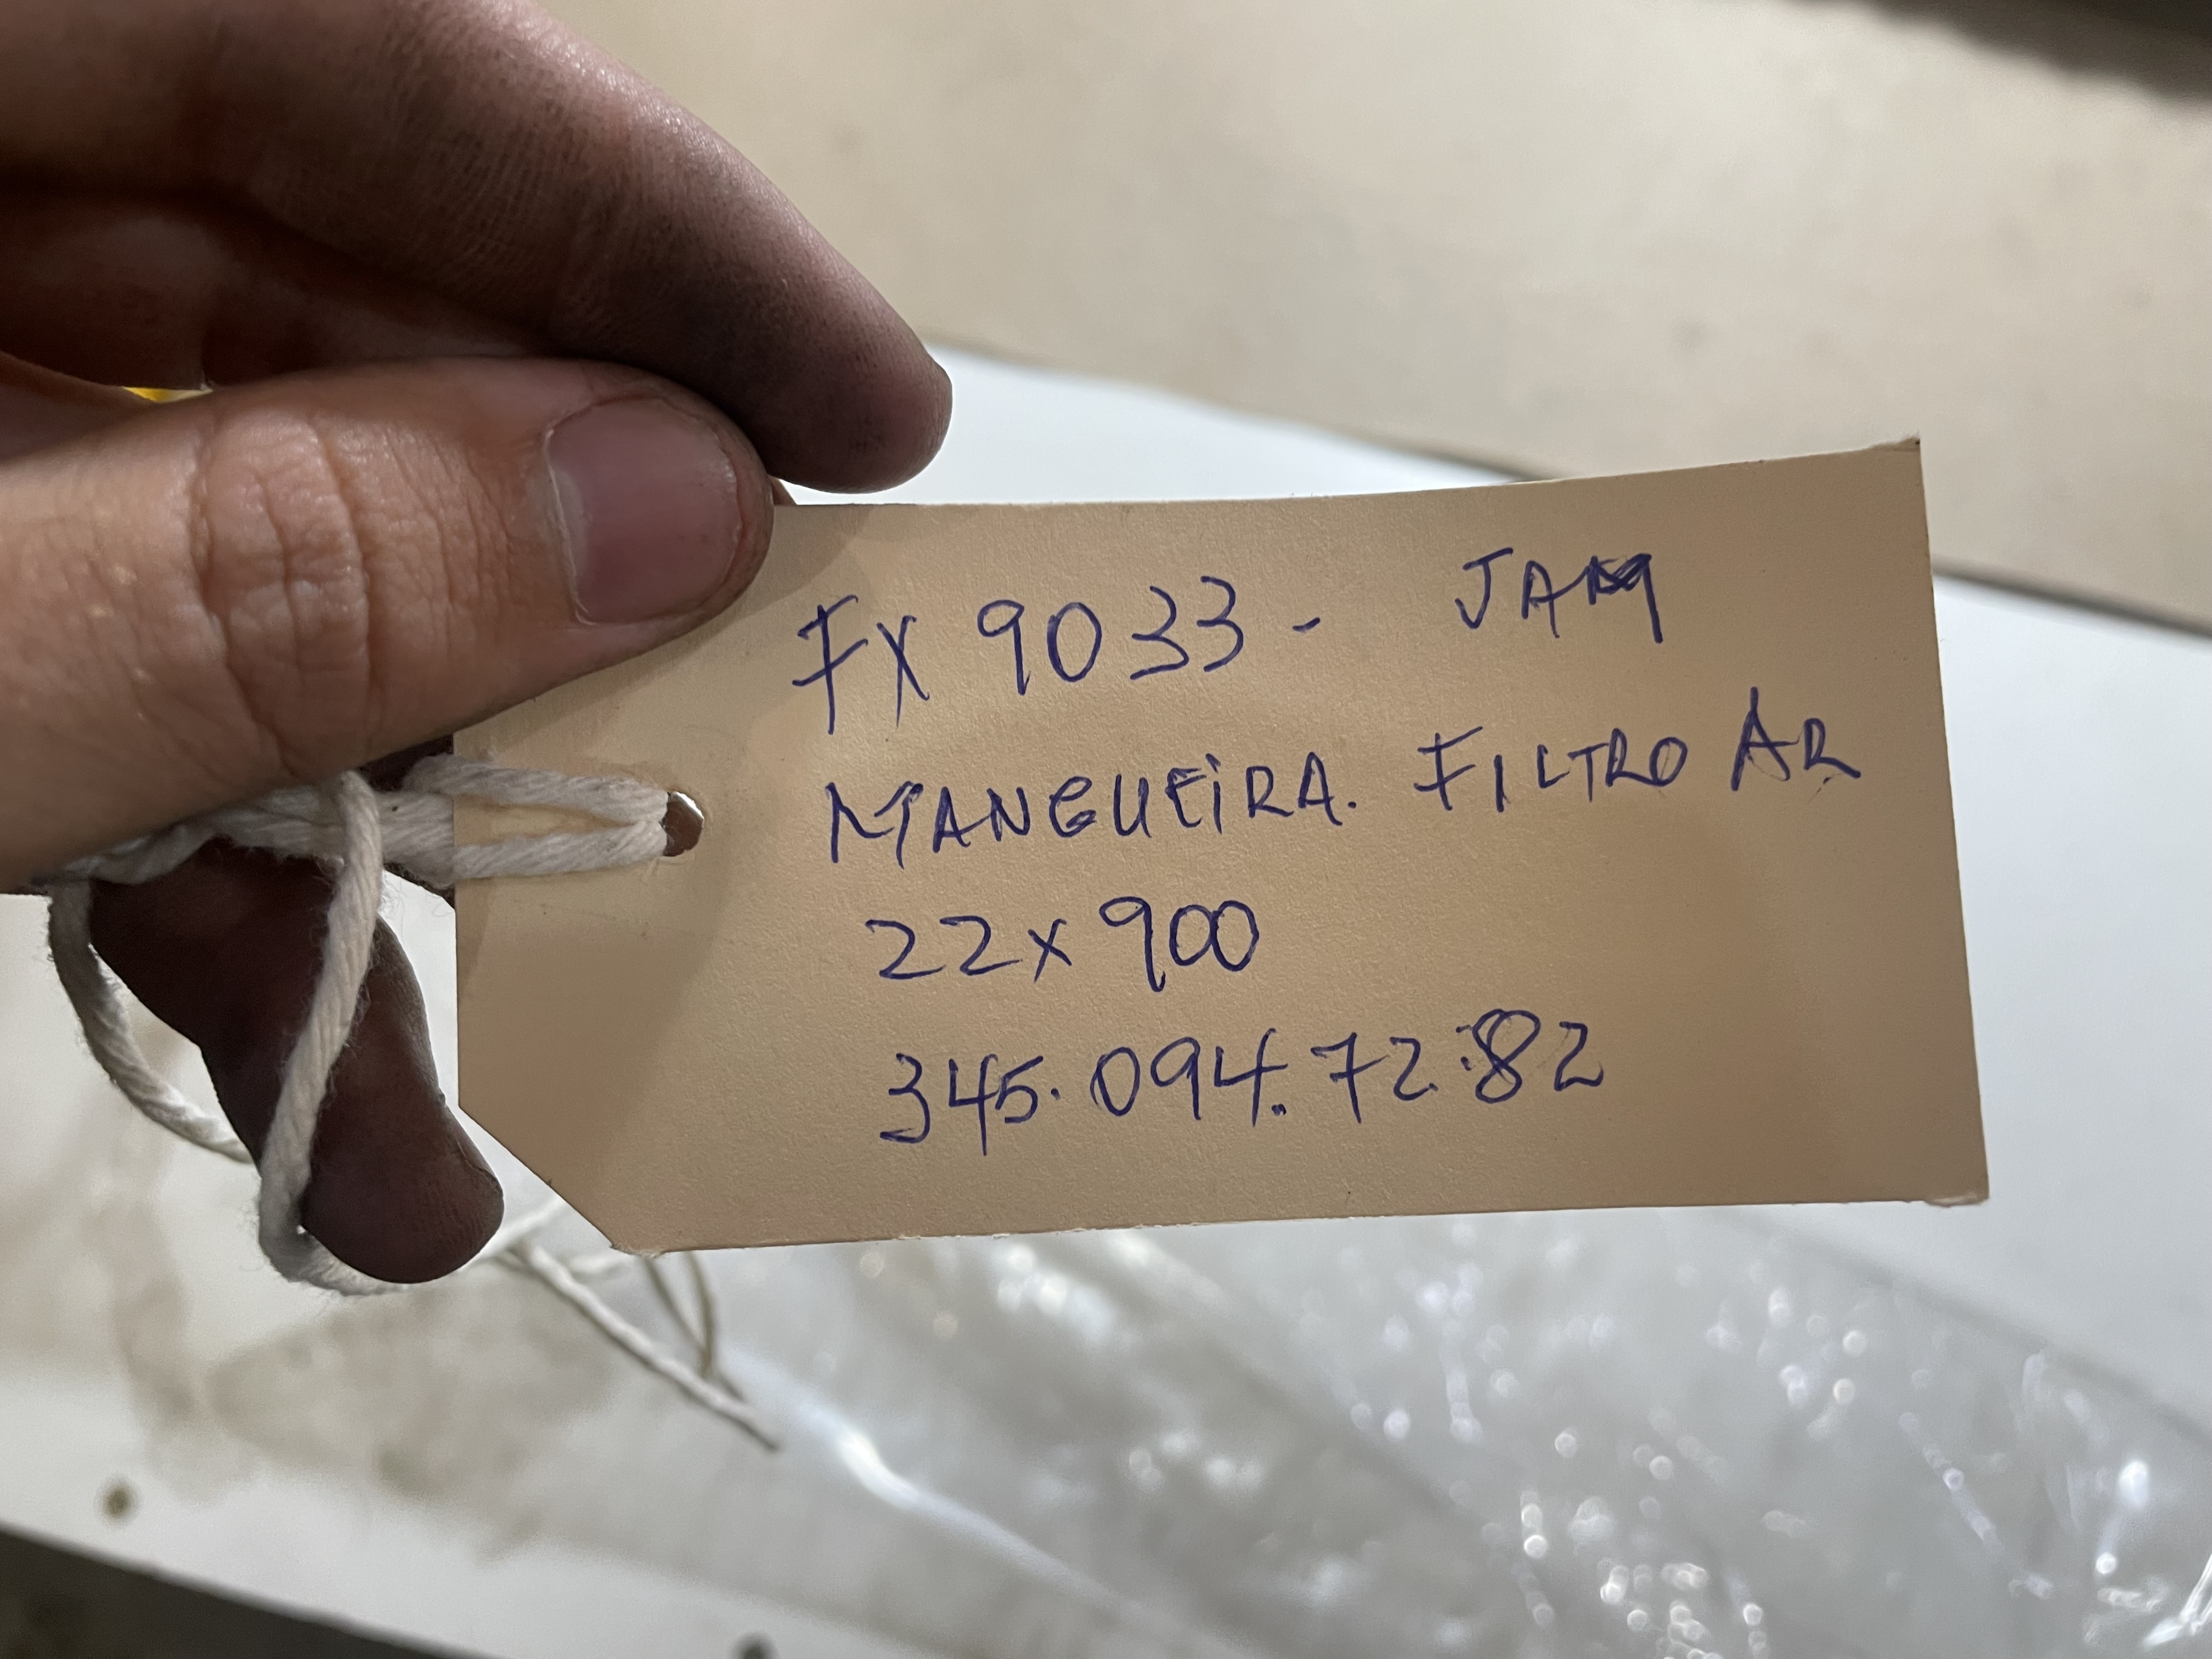 FX 9033 - JAM
MANGUEIRA. FILTRO AR
22x900
345.094.72.82